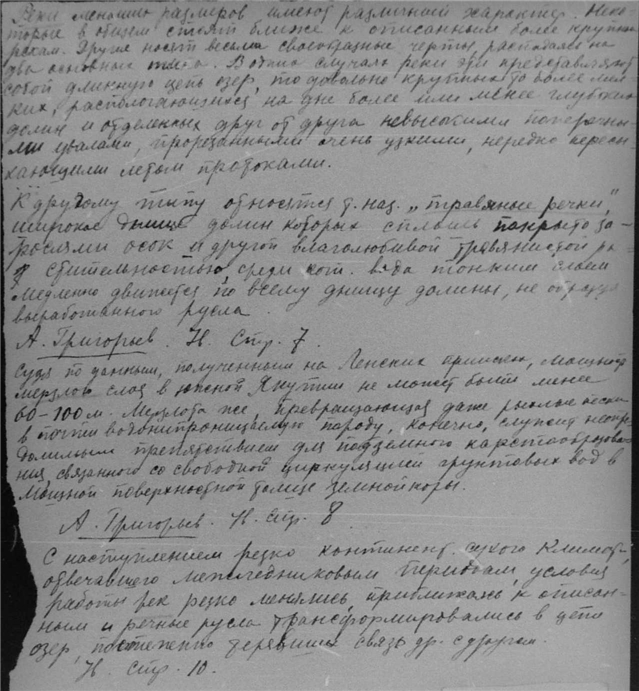 Реки меньших размеров имеют различный характер. Неко-
торые в общем стоят ближе к описанным более крупным
рекам. Другие носят весьма своеобразные черты, распадаясь на
два основных типа. В одних случаях реки эти представляют
собой длинную цепь озер, то довольно крупных то более мел-
ких, располагающихся на дне более или менее глубоких
долин и отделенных друг от друга невысокими поперечны-
ми увалами, прорезанными очень узкими, нередко пересы-
хающими летом протоками.
К другому типу относятся т. наз. „травяные речки",
широкое днище долин которых сплошь покрыто за-
рослями осок и другой влаголюбивой травянистой ра-
стительностью, среди кот. вода тонким слоем
медленно движется по всему днищу долины, не образуя
выработанного русла.
А. Григорьев. Н. Стр. 7.
Судя по данным, полученными на Ленских приисках, мощность
мерзлого слоя в южной Якутии не может быть менее
60-100 м. Мерзлота же, превращающая даже рыхлые пески
в почти водонепроницаемую породу, конечно, служит непре-
долимым препятствием для подземного карстообразова-
ния, связанного со свободной циркуляцией грунтовых вод в
мощной поверхностной толще земной коры.
А. Григорьев. Н. Стр. 8
С наступлением резко континент. сухого климата,
отвечавшего межледниковым периодам, условия
работы рек резко менялись, приближаясь к описан-
ным и речные русла трансформировались в цепи
озер, постепенно терявших связь др. с другом.
Н. Стр. 10.